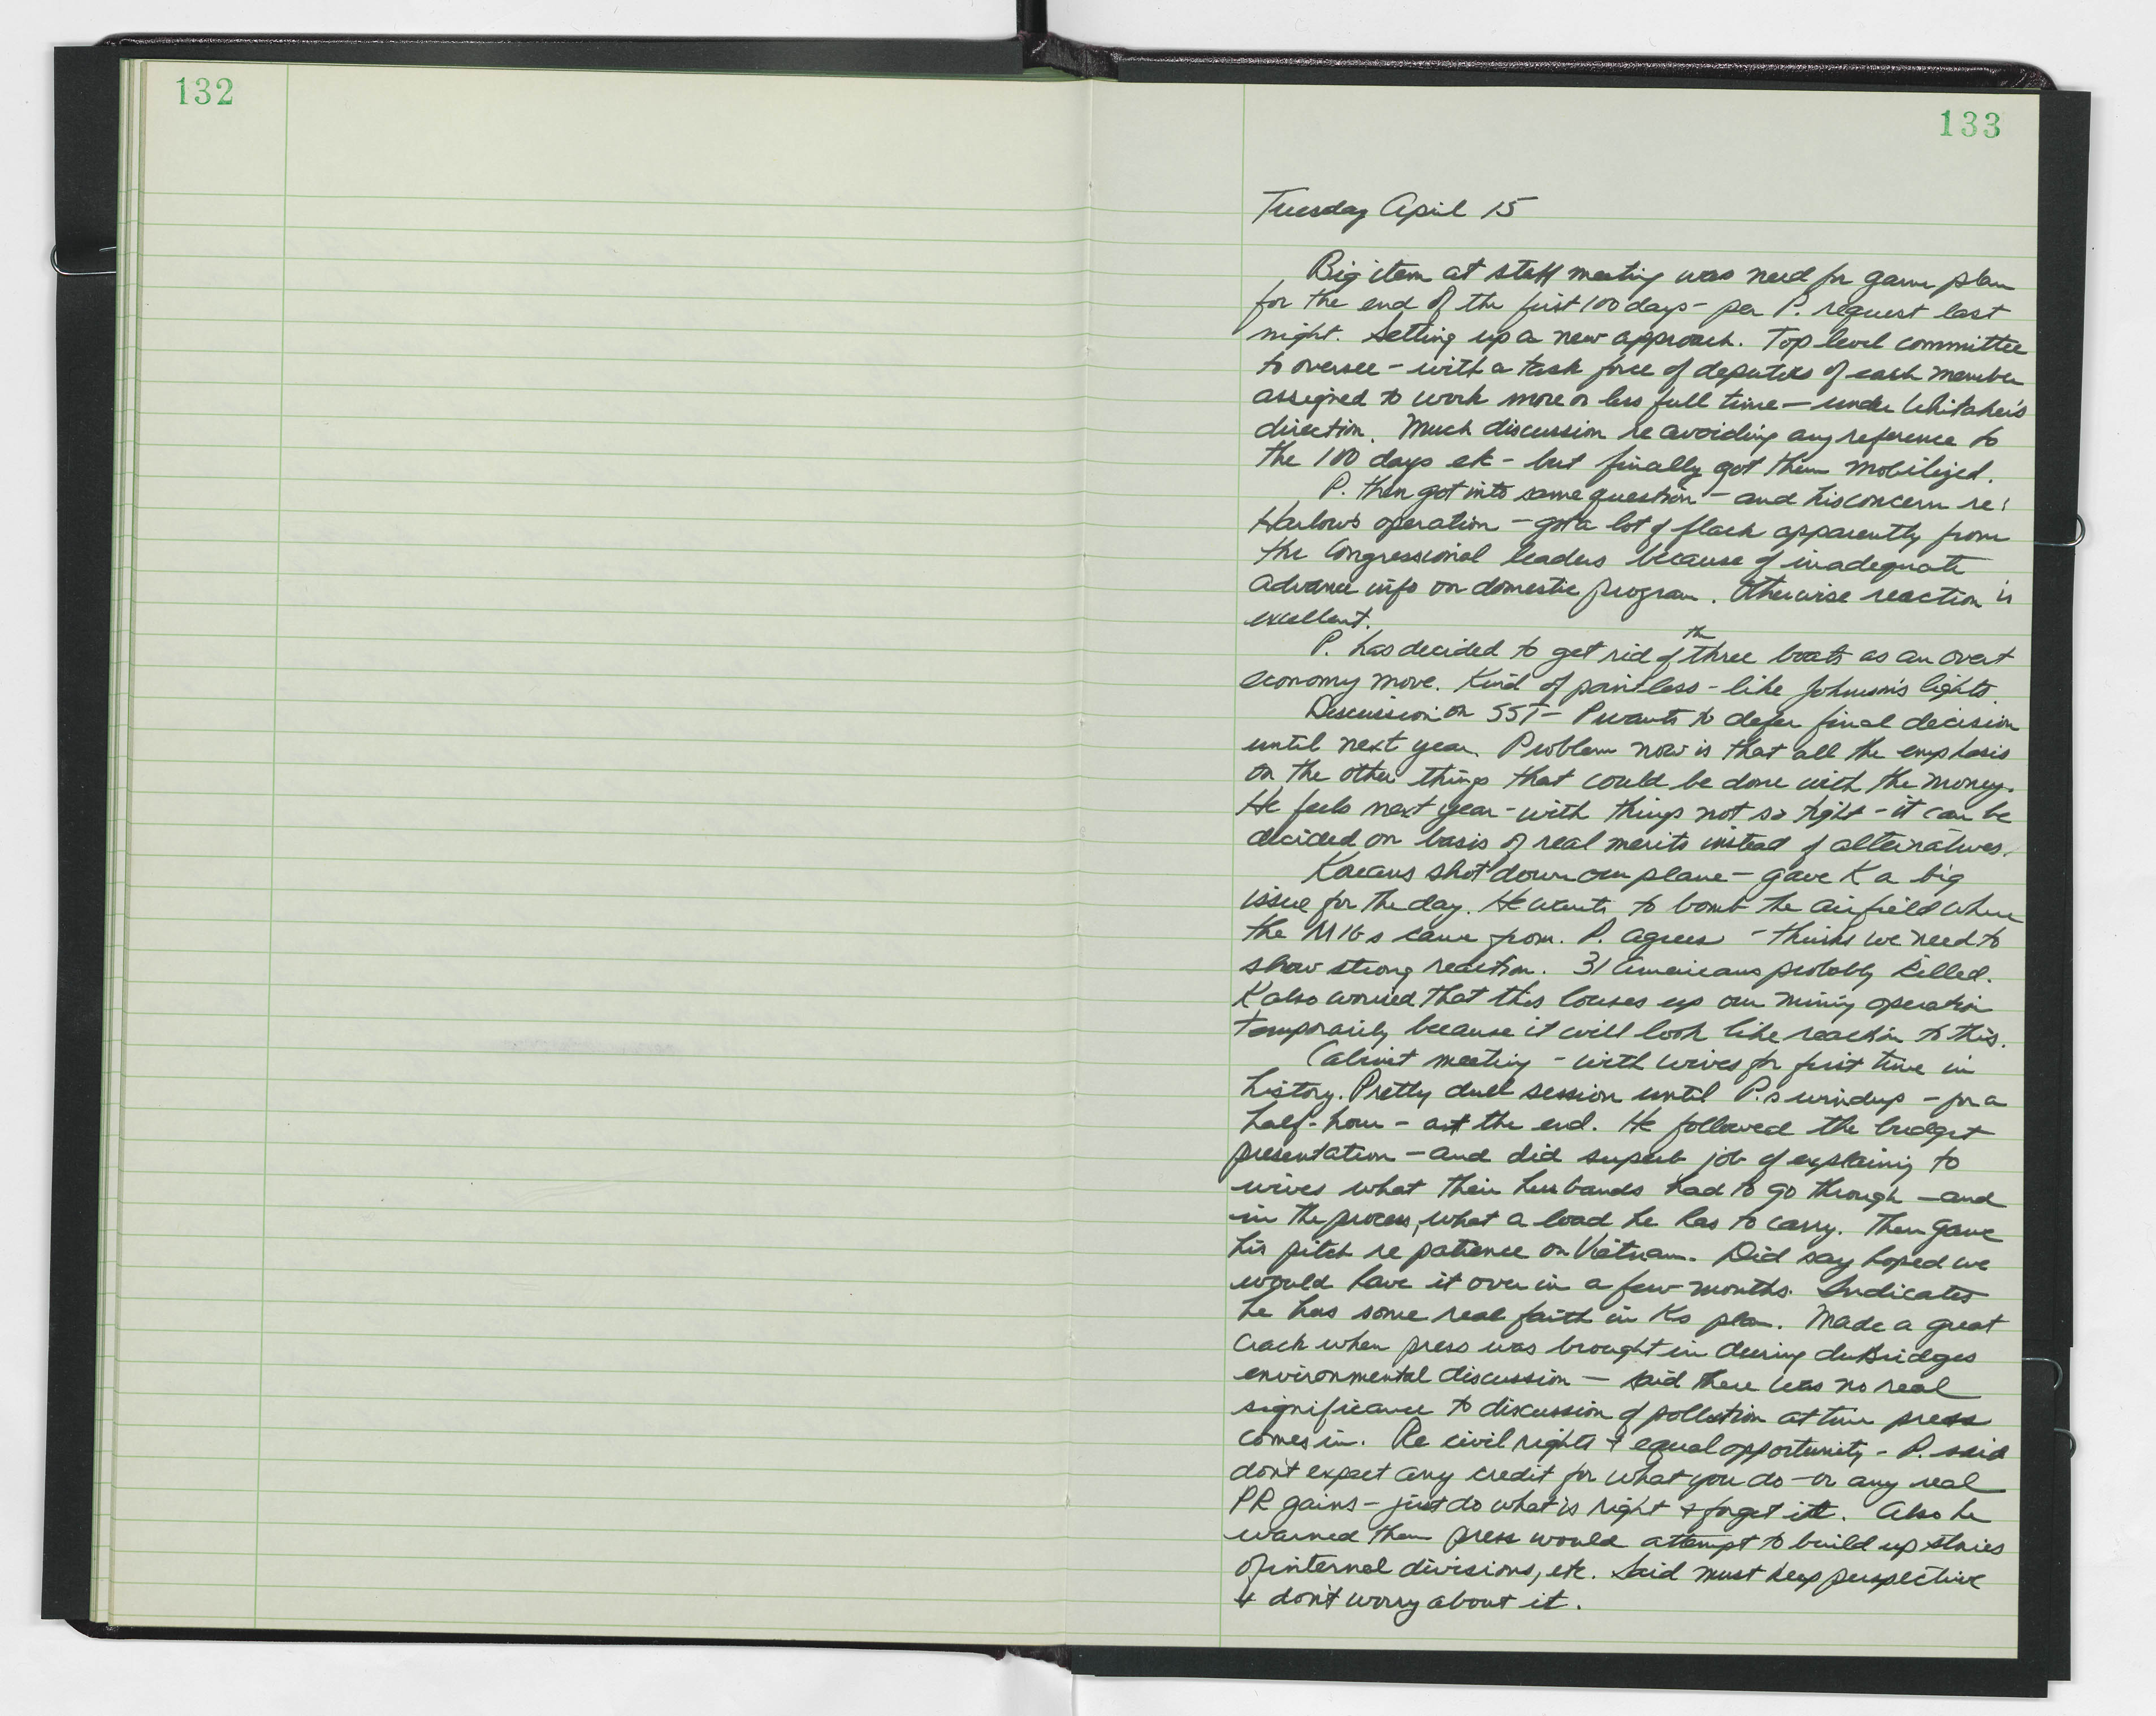 132
133
Tuesday April 15
Big item at staff meeting was need for game plan
for the end of the first 100 days - per P. request last
night. Setting up a new approach. Top level committee
to oversee - with a task force of deputies of each member
assigned to work more or less full time - under Whitaker's
direction. Much discussion re avoiding any reference to
the 100 days etc - but finally got them mobilized.
P. then got into same question - and his concern re:
Harlow's operation - got a lot of flack apparently from
the Congressional leaders because of inadequate
advance info on domestic program. Otherwise reaction is
excellent.
P. has decided to get rid of the three boats as an overt
economy move. Kind of pointless - like Johnson's lights.
Discussion on SST - P wants to defer final decision
until next year. Problem now is that all the emphasis
on the other things that could be done with the money.
He feels next year - with things not so tight - it can be
decided on basis of real merits instead of alternatives.
Koreans shot down our plane - gave K a big
issue for the day. He wants to bomb the airfield where
the MIGs came from. P. agrees - thinks we need to
show strong reaction. 31 Americans probably killed.
K also worried that this louses up our mining operation
temporarily because it will look like reaction to this.
Cabinet meeting - with wives for first time in
history. Pretty dull session until P.s windup - for a
half-hour - at the end. He followed the budget
presentation - and did superb job of explaining to
wives what their husbands had to go through - and
in the process, what a load he has to carry. Then gave
his pitch re patience on Vietnam. Did say hoped we
would have it over in a few months. Indicates
he has some real faith in Ks plan. Made a great
crack when press was brought in during duBridges
environmental discussion - said there was no real
significance to discussion of pollution at time press
comes in. Re civil rights & equal opportunity - P. said
don't expect any credit for what you do - or any real
PR gains - just do what is right & forget it. Also he
warned them press would attempt to build up stories
of internal divisions, etc. Said must keep perspective
& don't worry about it.